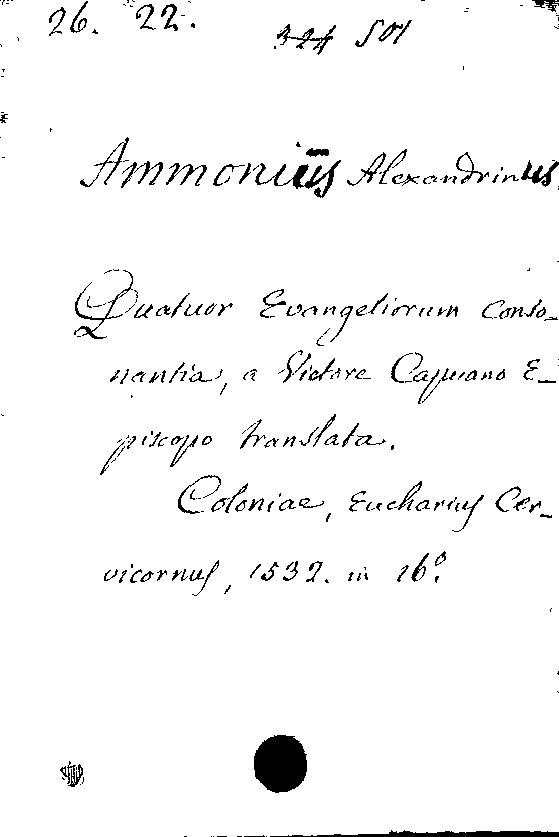 26. 22.
324 501
Ammonius Alexandrinus
Quatuor Evangeliorum Conso-
nantia, a Victore Capuano E-
piscopo translata.
Coloniae, Eucharius Cer-
vicornus, 1532. in 16º.